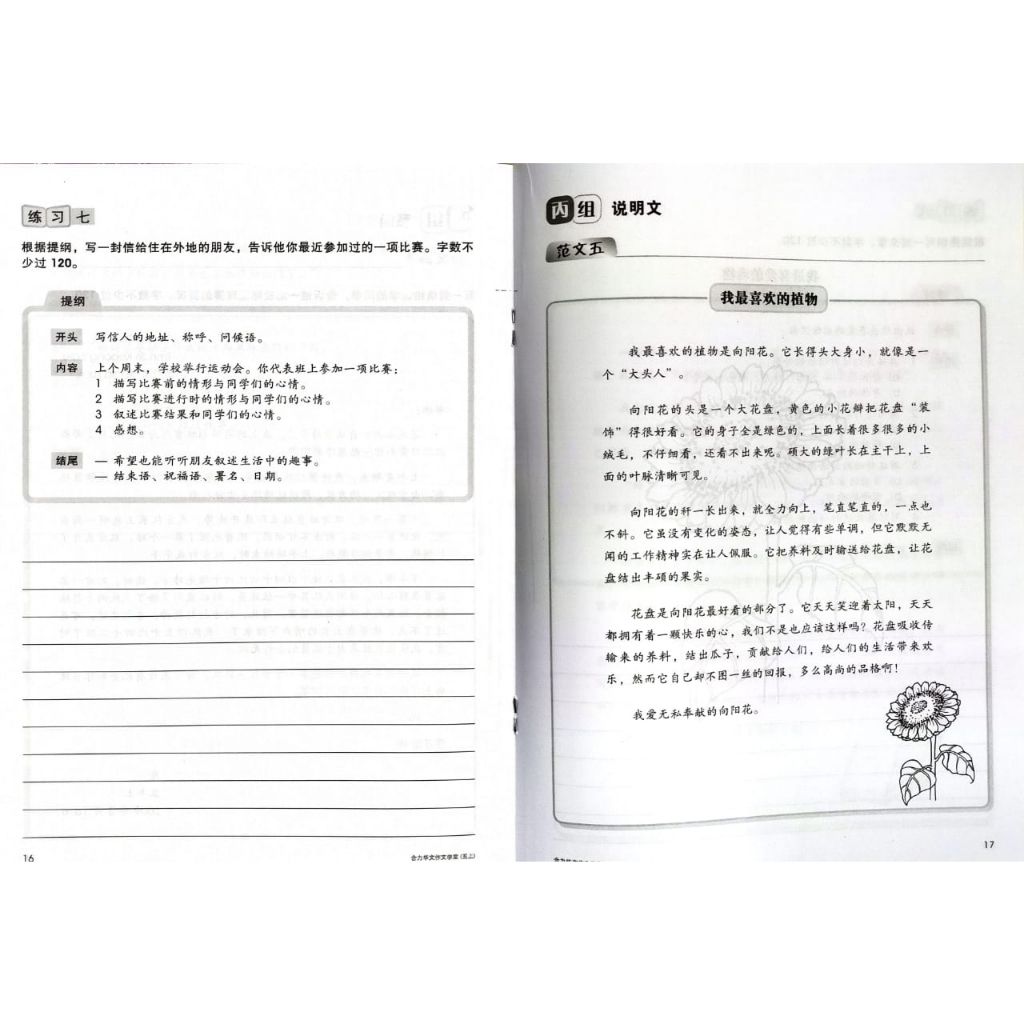 练习七
根据提纲，写一封信给住在外地的朋友，告诉他你最近参加过的一项比赛。字数不
少过 120。
提纲
开头 写信人的地址、称呼、问候语。
内容 上个周末，学校举行运动会。你代表班上参加一项比赛：
1 描写比赛前的情形与同学们的心情。
2 描写比赛进行时的情形与同学们的心情。
3 叙述比赛结果和同学们的心情。
4 感想。
结尾 — 希望也能听听朋友叙述生活中的趣事。
— 结束语、祝福语、署名、日期。
16
合力华文作文学堂（五上）
丙组 说明文
范文五
我最喜欢的植物
我最喜欢的植物是向阳花。它长得头大身小，就像是一
个“大头人”。
向阳花的头是一个大花盘，黄色的小花瓣把花盘“装
饰”得很好看。它的身子全是绿色的，上面长着很多很多的小
绒毛，不仔细看，还看不出来呢。硕大的绿叶长在主干上，上
面的叶脉清晰可见。
向阳花的秆一长出来，就全力向上，笔直笔直的，一点也
不斜。它虽没有变化的姿态，让人觉得有些单调，但它默默无
闻的工作精神实在让人佩服。它把养料及时输送给花盘，让花
盘结出丰硕的果实。
花盘是向阳花最好看的部分了。它天天笑迎着太阳，天天
都拥有着一颗快乐的心，我们不是也应该这样吗？花盘吸收传
输来的养料，结出瓜子，贡献给人们，给人们的生活带来欢
乐，然而它自己却不图一丝的回报，多么高尚的品格啊！
我爱无私奉献的向阳花。
17